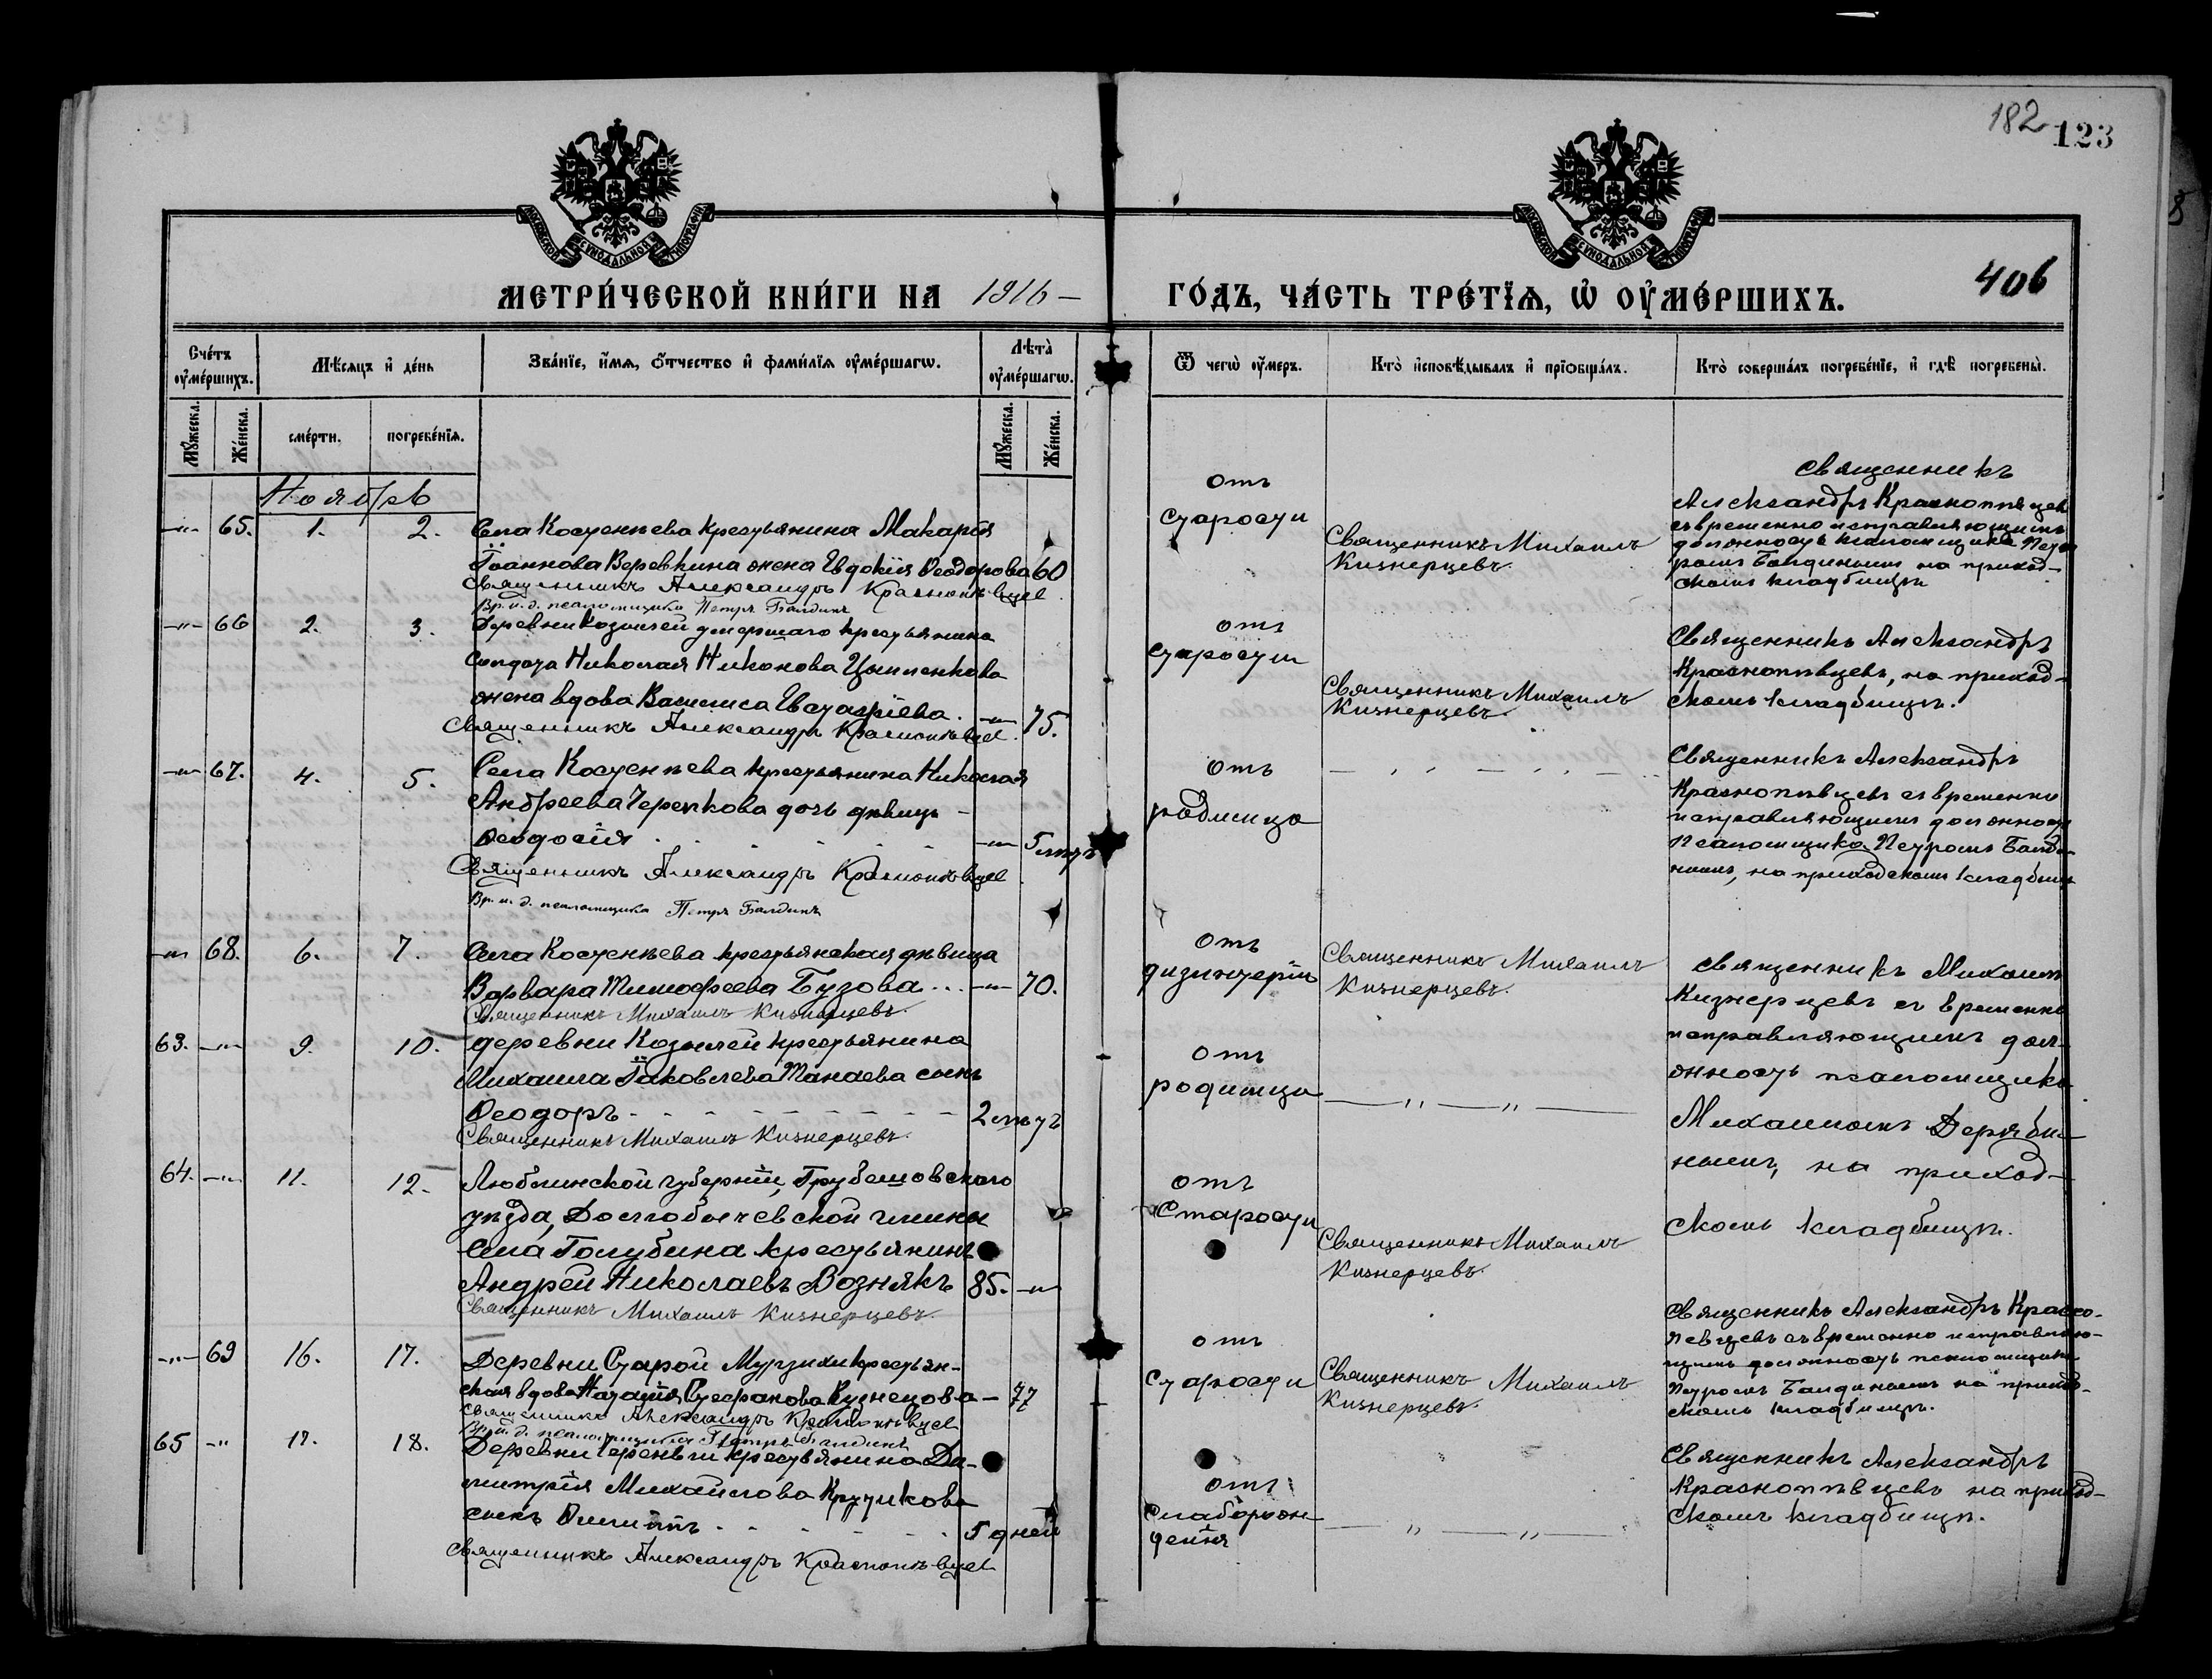 182
123
МОСКОВСКОЙ СѴНОДАЛЬНОЙ ТИПОГРАФІИ
МОСКОВСКОЙ СѴНОДАЛЬНОЙ ТИПОГРАФІИ
МЕТРИ́ЧЕСКОЙ КНИ́ГИ НА 1916 —
ГО́ДЪ, ЧА́СТЬ ТРЕ́ТЇѦ, Ѡ҆ ОУ҆МЕ́РШИХЪ.
406
Сче́тъ оу҆ме́ршихъ.
Мѣ́сѧцъ и҆ де́нь
Зва́нїе, и҆́мѧ, ѻ҆́тчество и҆ фами́лїѧ оу҆ме́ршагѡ.
Лѣ́та оу҆ме́ршагѡ.
Мꙋ́жеска.
Же́нска.
сме́рти.
погребе́нїѧ.
Мꙋ́жеска.
Же́нска.
Ѿ чегѡ̀ оу҆́меръ.
Кто̀ и҆сповѣ́дывалъ и҆ прїѡбща́лъ.
Кто̀ соверша́лъ погребе́нїе, и҆ гдѣ̀ погребены̀.
Ноябрь
—"— 65. 1. 2. Села Костенѣева крестьянина Макарія
Іоаннова Веревкина жена Евдокія Ѳеодорова 60
Священникъ Александръ Краснопѣвцев
Вр. и. д. псаломщика Петръ Балдинъ
отъ
старости
Священникъ Михаилъ
Кизнерцевъ.
Священникъ
Александръ Краснопѣвцев
съ временно исправляющимъ
должность псаломщика Пет
ромъ Балдинымъ на приход-
скомъ кладбищѣ
—"— 66 2. 3. Деревни Козылей умершаго крестьянина
солдата Николая Никонова Цыпленкова
жена вдова Василиса Евстафіева. —"— 75.
Священникъ Александръ Краснопѣвцев.
отъ
старости
Священникъ Михаилъ
Кизнерцевъ.
Священникъ Александръ
Краснопѣвцевъ, на приход-
скомъ кладбищѣ.
—"— 67. 4. 5. Села Костенѣева крестьянина Николая
Андреева Черепкова дочь дѣвица
Ѳеодосія —"— 5 лѣтъ
Священникъ Александръ Краснопѣвцев
Вр. и. д. псаломщика Петръ Балдинъ
отъ
родимца
— " — " —
Священникъ Александръ
Краснопѣвцевъ съ временно
исправляющимъ должность
псаломщика Петромъ Балди-
нымъ, на приходскомъ кладбищѣ
—"— 68. 6. 7. Села Костенѣева крестьянская дѣвица
Варвара Тимофеева Бузова . . . —"— 70.
Священникъ Михаилъ Кизнерцевъ.
отъ
дизинтеріи
Священникъ Михаилъ
Кизнерцевъ.
Священникъ Михаилъ
Кизнерцевъ съ временно
исправляющимъ дол-
жность псаломщика
Михаиломъ Деряби-
нымъ, на приход-
скомъ кладбищѣ.
63. —"— 9. 10. деревни Козылей крестьянина
Михаила Іаковлева Танаева сынъ
Ѳеодоръ 2 лѣтъ
Священникъ Михаилъ Кизнерцевъ.
отъ
родимца
— " — " —
64. —"— 11. 12. Люблинской губерніи, Грубешовскаго
уѣзда, Долгобычевской гмины
села Голубина крестьянинъ
Андрей Николаевъ Вознякъ 85. —"—
Священникъ Михаилъ Кизнерцевъ.
отъ
Старости
Священникъ Михаилъ
Кизнерцевъ.
—"— 69 16. 17. Деревни Старой Мурзихи крестьян-
ская вдова Наталія Стефанова Кузнецова — 77
Священникъ Александръ Краснопѣвцев
Вр. и. д. псаломщика Петръ Балдинъ
отъ
Старости
Священникъ Михаилъ
Кизнерцевъ.
Священникъ Александръ Красно-
певцевъ съ временно исправляю-
щимъ должность псаломщика
Петромъ Балдинымъ на приход-
скомъ кладбищѣ.
65 —"— 17. 18. Деревни крестьянина Ди-
митрія Михайлова Крутикова
сынъ Филиппъ 5 дней
Священникъ Александръ Краснопѣвцев
отъ
слаборож
денія
— " — " —
Священникъ Александръ
Краснопѣвцевъ на приход-
скомъ кладбищѣ.